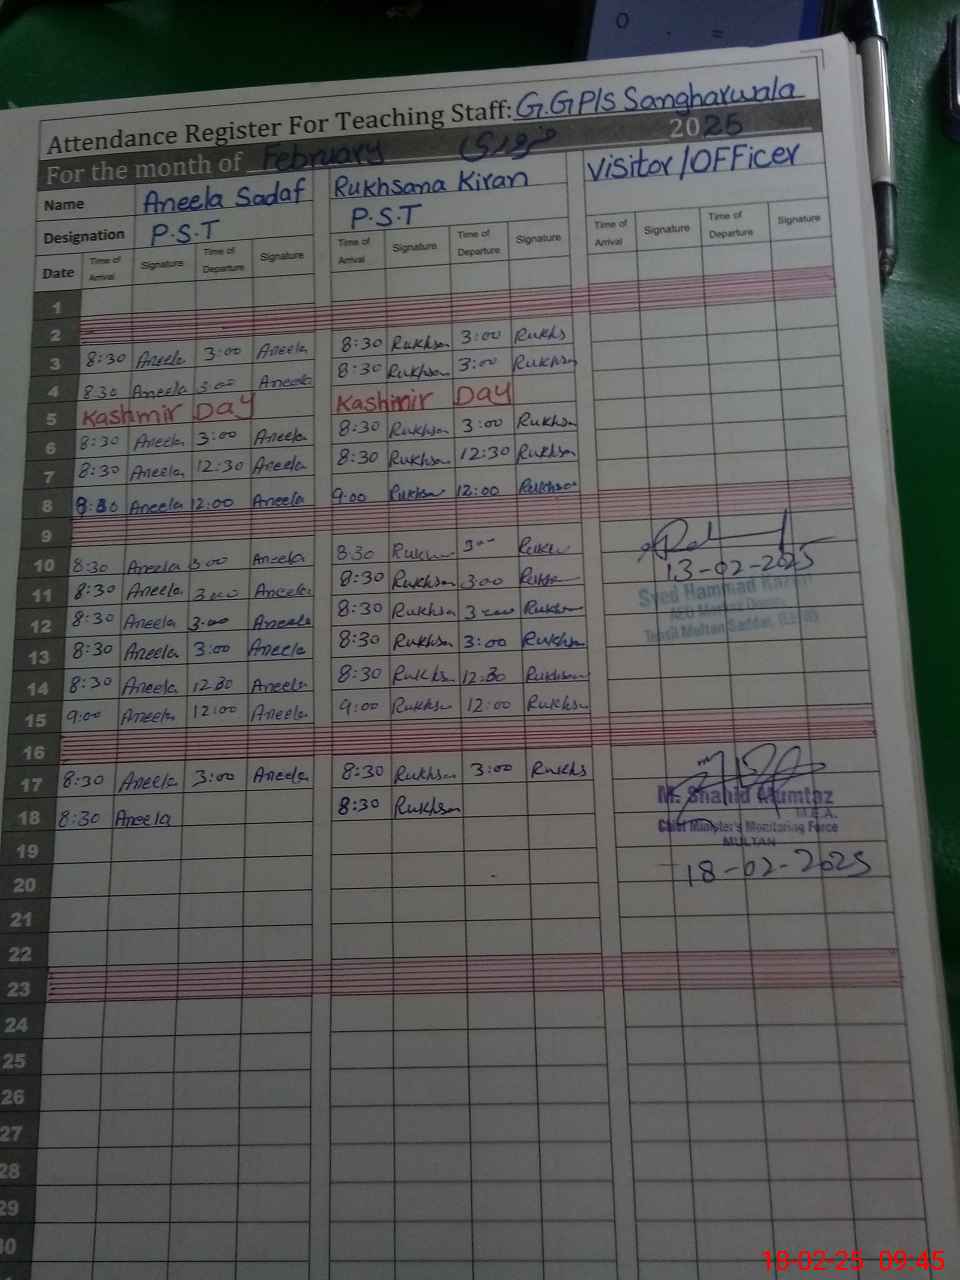 0 . =
Attendance Register For Teaching Staff: G.GP/S Sangharwala
For the month of February فروری 2025
Name Aneela Sadaf Rukhsana Kiran Visitor/OFFicer
Designation P.S.T P.S.T
Date Time of Arrival Signature Time of Departure Signature Time of Arrival Signature Time of Departure Signature Time of Arrival Signature Time of Departure Signature
1
2
3 8:30 Aneela 3:00 Aneela 8:30 Rukhsan 3:00 Rukhs
4 830 Aneela 3:00 Aneela 8:30 Rukhsan 3:00 Rukhsn
5 Kashmir DAY Kashmir DAY
6 8:30 Aneela 3:00 Aneela 8:30 Rukhsn 3:00 Rukhsn
7 8:30 Aneela 12:30 Aneela 8:30 Rukhsan 12:30 Rukhsn
8 8:30 Aneela 12:00 Aneela 9:00 Rukhsn 12:00 Rukhsn
9
10 8:30 Aneela 300 Aneela 8:30 300
11 8:30 Aneela 3:00 Aneela 8:30 Rukhsan 300
12 8:30 Aneela 3:00 Aneela 8:30 Rukhsn 3:00 Rukhsn
13 8:30 Aneela 3:00 Aneela 8:30 Rukhsn 3:00 Rukhsn
14 8:30 Aneela 1230 Aneela 8:30 Rukhs 12:30 Rukhsn
15 9:00 Aneela 12:00 Aneela 9:00 Rukhsn 12:00 Rukhsn
16
17 8:30 Aneela 3:00 Aneela 8:30 Rukhsn 3:00 Rukhs
18 8:30 Aneela 8:30 Rukhsn
19
20
21
22
23
24
25
26
27
28
29
30
13-02-2025
Syed Hammad
Tehsil Multan Saddar,
M. Shahid Mumtaz
M.E.A.
Chief Minister's Monitoring Force
MULTAN
18-02-2025
18-02-25 09:45